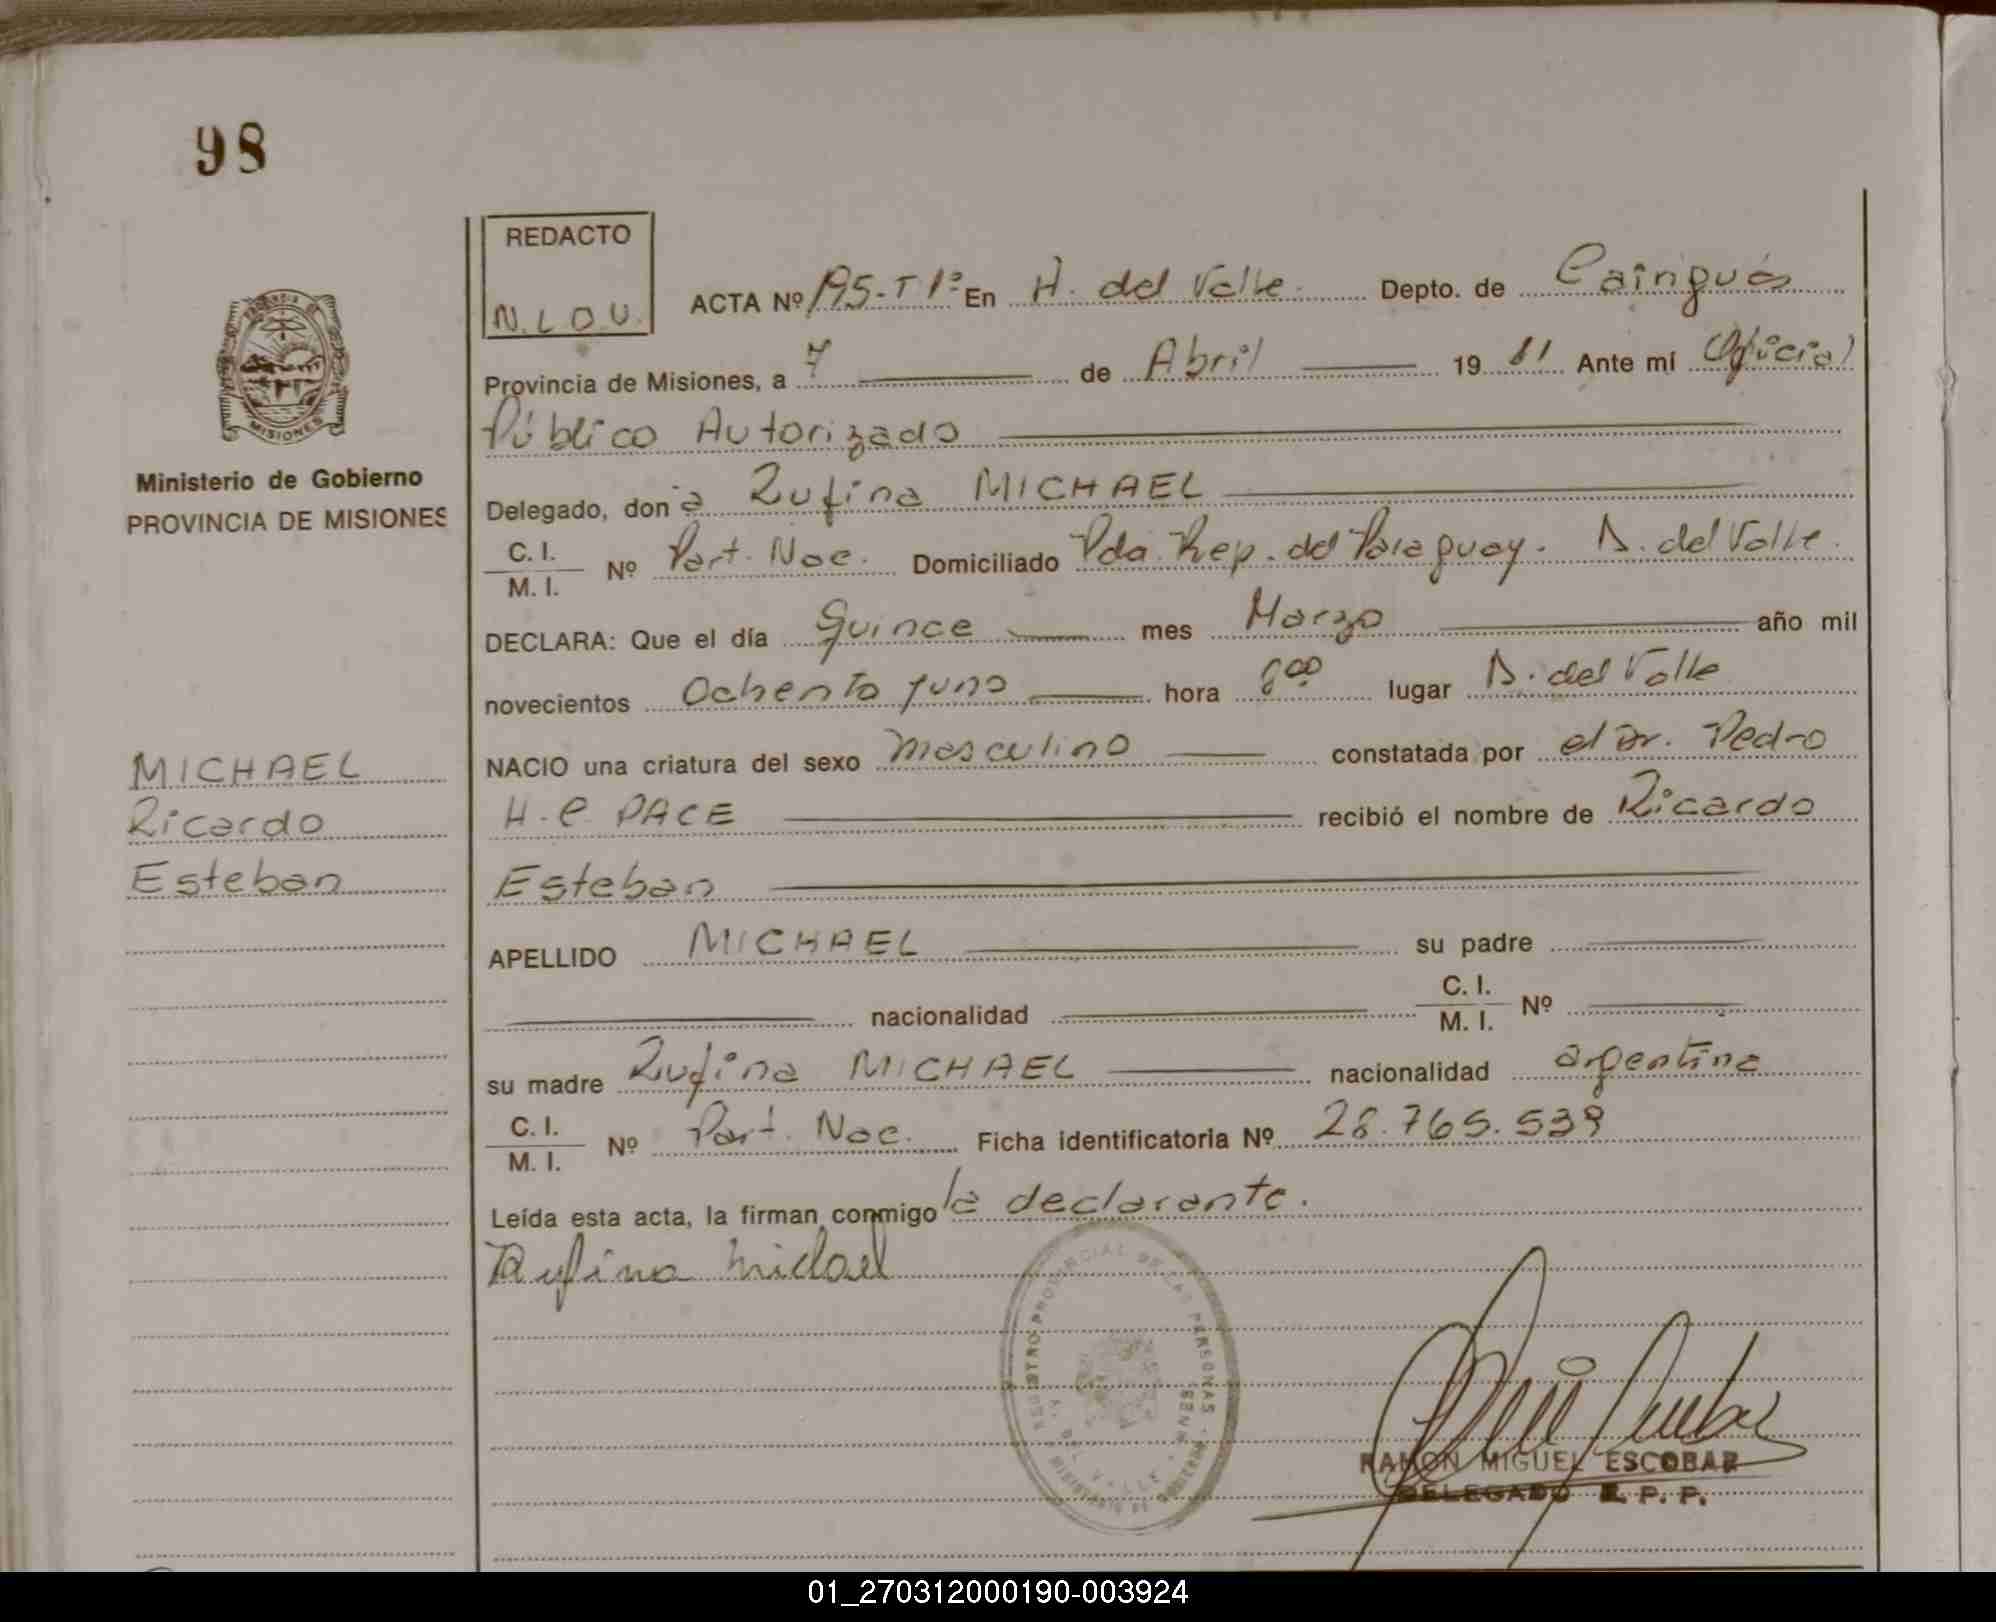 98
REDACTO
N.L.O.U.
ACTA Nº 195-T 1º En A. del Valle Depto. de Cainguás
Provincia de Misiones, a 7 de Abril 19 81 Ante mí Oficial
Público Autorizado
Delegado, don a Rufina MICHAEL
C. I.
M. I.
Nº Part. Nac. Domiciliado Pda. Rep. del Paraguay. A. del Valle.
DECLARA: Que el día Quince mes Marzo año mil
novecientos Ochenta y uno hora lugar A. del Valle
NACIO una criatura del sexo masculino constatada por el Dr. Pedro
H. C. PACE recibió el nombre de Ricardo
Esteban
APELLIDO MICHAEL su padre
nacionalidad
C. I.
M. I.
Nº
su madre Rufina MICHAEL nacionalidad argentina
C. I.
M. I.
Nº Part. Nac. Ficha identificatoria Nº 28.765.539
Leída esta acta, la firman conmigo la declarante.
Rufina Michael
REGISTRO PROVINCIAL DE LAS PERSONAS
A. DEL VALLE
MISIONES
RAMON MIGUEL ESCOBAR
DELEGADO R. P. P.
MISIONES
Ministerio de Gobierno
PROVINCIA DE MISIONES
MICHAEL
Ricardo
Esteban
01_270312000190-003924